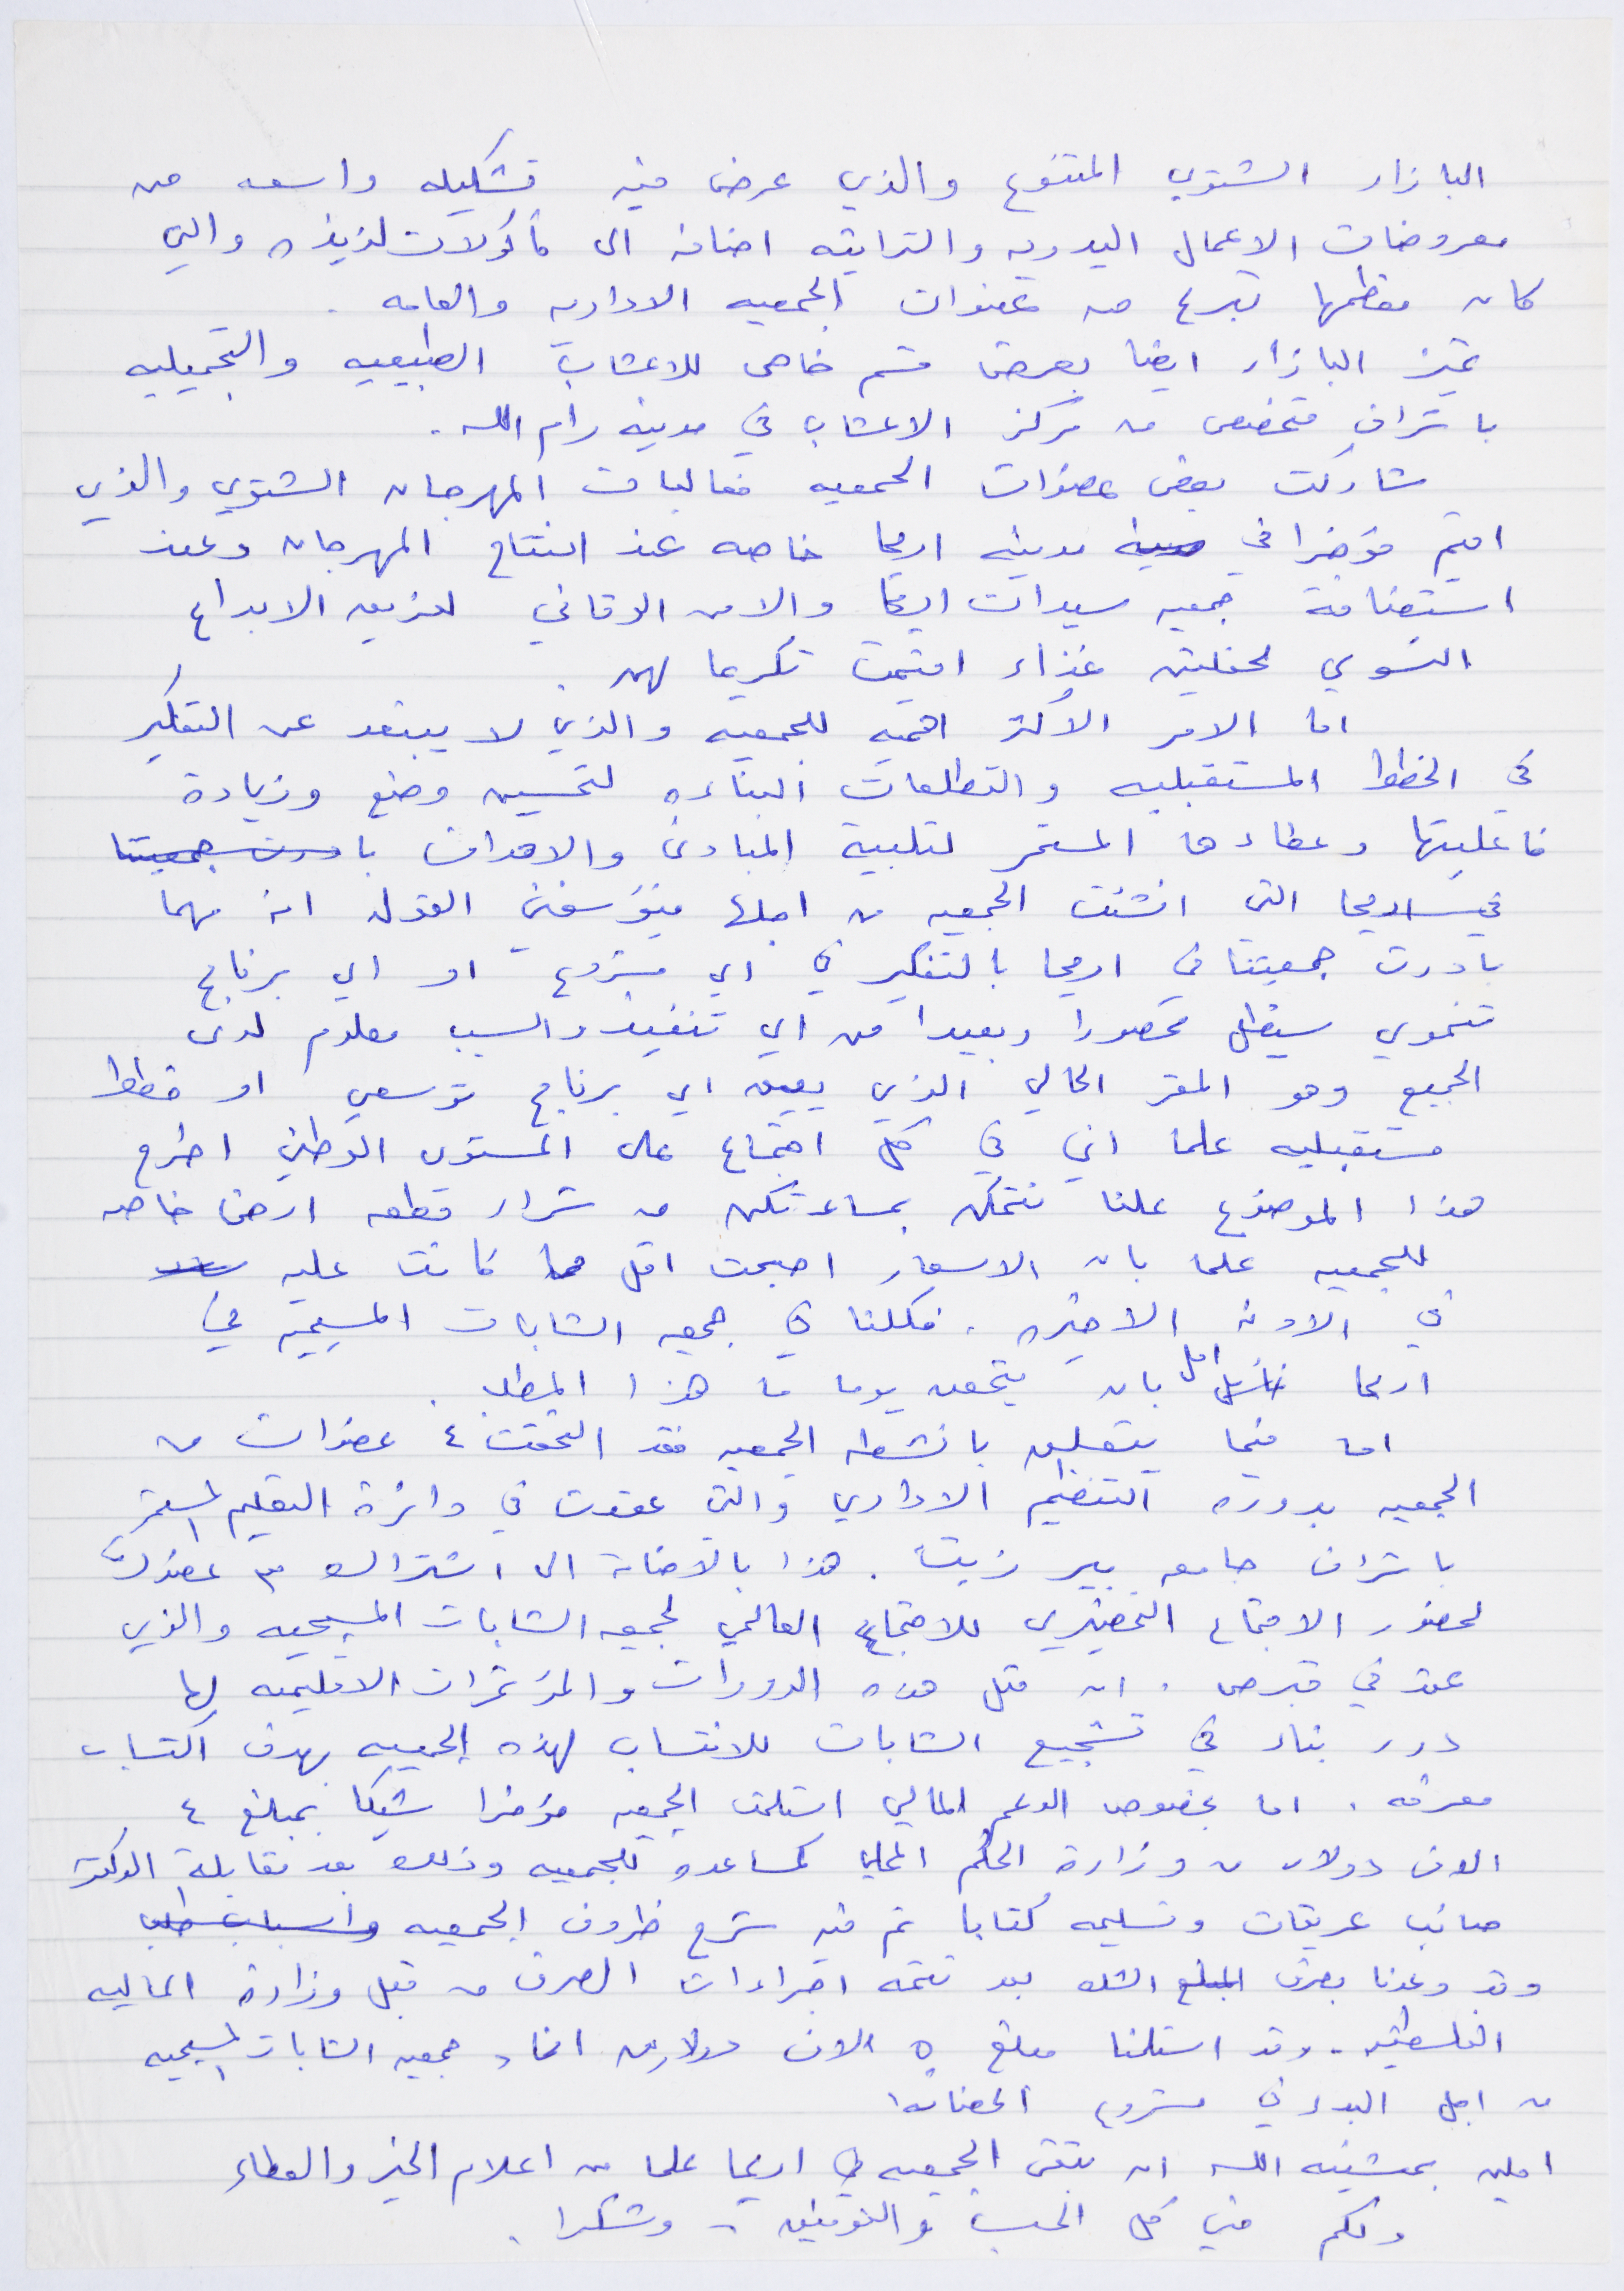 البازار الشتوي المتنوع والذي عرض فيه تشكيله واسعه من
معروضات الاعمال اليدويه والتراثيه اضافه الى مأكولات لذيذه والتي
كان معظمها تبرع من عضوات الجمعيه الاداريه والعامه .
تميز البازار ايضا بعرض قسم خاص للاعشاب الطبيعيه والتجميليه
باشراف متخصص من مركز الاعشاب في مدينه رام الله .
شاركت بعض عضوات الجمعيه فعاليات المهرجان الشتوي والذي
اقيم مؤخرا في مدينه اريحا خاصه عند افتتاح المهرجان وعند
استضافة جمعيه سيدات اريحا والامن الوقائي لفريق الابداع
النسوي لحفلتين غذاء اقيمت تكريما لهن .
اما الامر الاكثر اهميه للجمعيه والذي لا يبتعد عن التفكير
في الخطط المستقبليه والتطلعات البناءه لتحسين وضع وزيادة
فاعليتها وعطاءها المستمر لتلبية المبادئ والاهداف بادرت جمعيتنا
في اريحا التي انشئت الجمعيه من اجلها فيؤسفني القول انه مهما
بادرت جمعيتنا في اريحا بالتفكير في اي مشروع او اي برنامج
تنموي سيظل محصورا وبعيدا من اي تنفيذ والسبب معلوم لدى
الجميع وهو المقر الحالي الذي يعيق اي برنامج توسعي او خطط
مستقبليه علما اني في كل اجتماع على المستوى الوطني اطرح
هذا الموضوع علنا نتمكن بمساعدتكن من شراء قطعه ارض خاصه
للجمعيه علما بان الاسعار اصبحت اقل مما كانت عليه
في الاونه الاخيره . فكلنا في جمعيه الشابات المسيحيه في
اريحا امل بان يتحقق يوما ما هذا المطلب .
اما فيما يتعلق بانشطه الجمعيه فقد التحقت ٤ عضوات من
الجمعيه بدورة التنظيم الاداري والتي عقدت في دائرة التعليم المستمر
باشراف جامعه بير زيت . هذا بالاضافة الى اشتراك ٣ عضوات
لحضور الاجتماع التحضيري للاجتماع العالمي لجمعيه الشابات المسيحيه والذي
عقد في قبرص . ان مثل هذه الدورات والمؤتمرات الاقليميه لها
دور بناء في تشجيع الشابات للانتساب لهذه الجمعيه بهدف اكتساب
معرفه . اما بخصوص الدعم المالي استلمت الجمعيه مؤخرا شيكا بمبلغ ٤
الاف دولار من وزارة الحكم المحلي كمساعده للجمعيه وذلك بعد مقابلة الدكتور
صائب عريقات وتسليمه كتابا تم فيه شرح ظروف الجمعيه واسباب طلب
وقد وعدنا بصرف المبلغ الشك بعد تتمه اجراءات الصرف من قبل وزارة الماليه
الفلسطينيه . وقد استلمنا مبلغ ٥ الاف دولار من اتحاد جمعيه الشابات المسيحيه
من اجل البدء في مشروع الحضانه
املين بمشيئه الله ان تبقى الجمعيه في اريحا علما من اعلام الخير والعطاء
ولكم مني كل الحب والتوفيق - وشكرا .